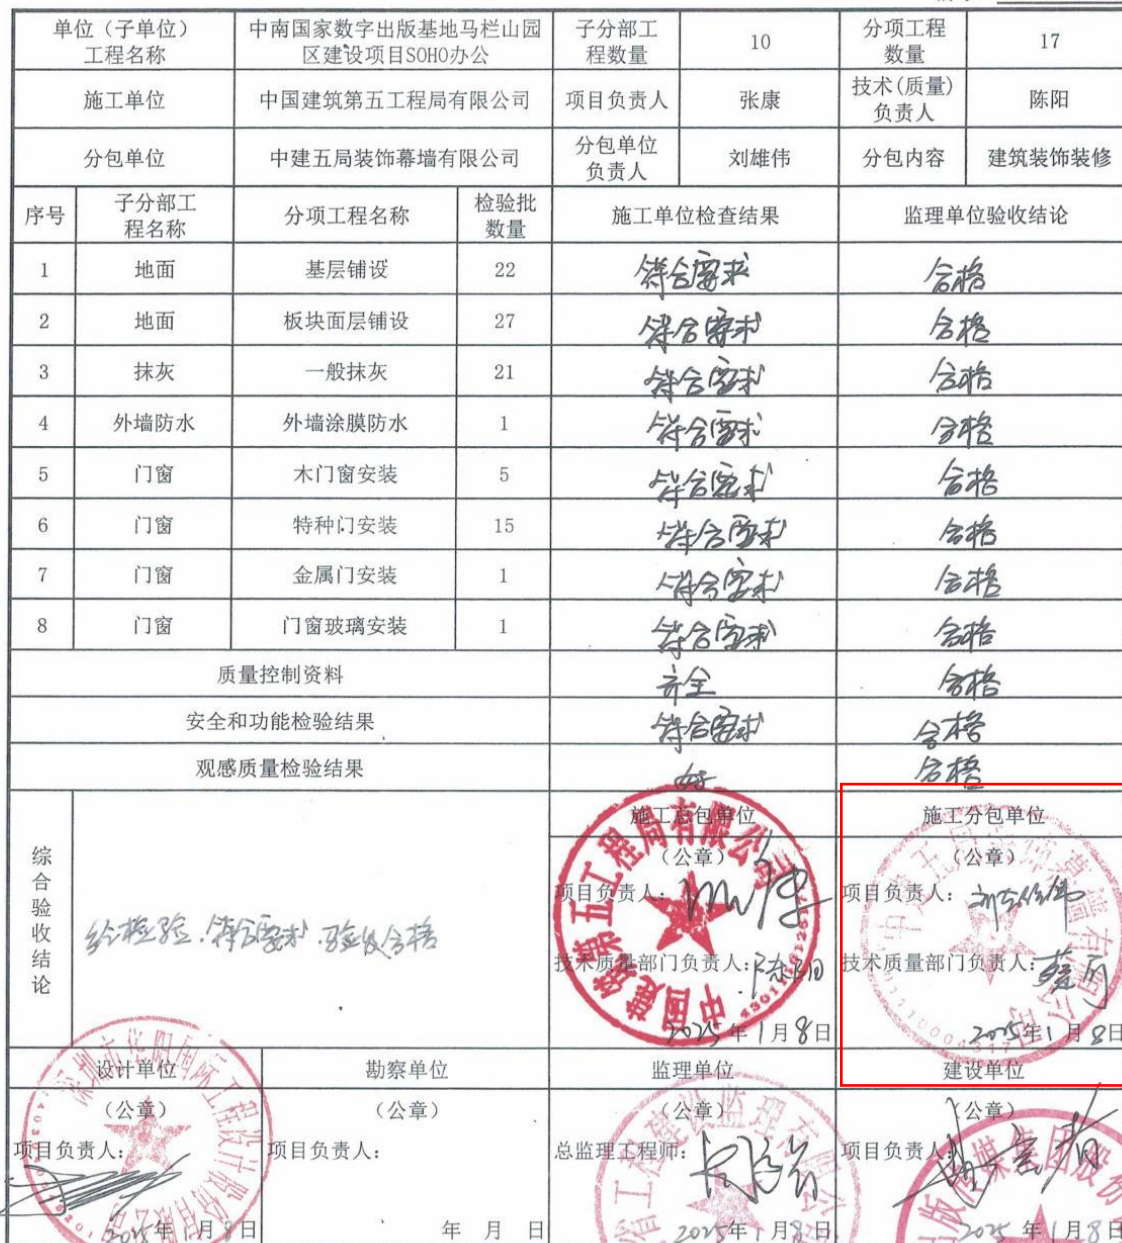 单位（子单位）
工程名称
中南国家数字出版基地马栏山园
区建设项目SOHO办公
子分部工
程数量
10
分项工程
数量
17
施工单位
中国建筑第五工程局有限公司
项目负责人
张康
技术(质量)
负责人
陈阳
分包单位
中建五局装饰幕墙有限公司
分包单位
负责人
刘雄伟
分包内容
建筑装饰装修
序号
子分部工
程名称
分项工程名称
检验批
数量
施工单位检查结果
监理单位验收结论
1 地面 基层铺设 22 符合要求 合格
2 地面 板块面层铺设 27 符合要求 合格
3 抹灰 一般抹灰 21 符合要求 合格
4 外墙防水 外墙涂膜防水 1 符合要求 合格
5 门窗 木门窗安装 5 符合要求 合格
6 门窗 特种门安装 15 符合要求 合格
7 门窗 金属门安装 1 符合要求 合格
8 门窗 门窗玻璃安装 1 符合要求 合格
质量控制资料 齐全 合格
安全和功能检验结果 符合要求 合格
观感质量检验结果 好 合格
综合验收结论
经检验,符合要求,验收合格
施工总包单位
（公章）
项目负责人:
技术质量部门负责人: 陈阳
2025年1月8日
中国建筑第五工程局有限公司
施工分包单位
（公章）
项目负责人: 刘雄伟
技术质量部门负责人:
2025年1月8日
中建五局装饰幕墙有限公司
设计单位
（公章）
项目负责人:
2025年1月8日
勘察单位
（公章）
项目负责人:
年 月 日
监理单位
（公章）
总监理工程师:
2025年1月8日
建设单位
（公章）
项目负责人
2025年1月8日